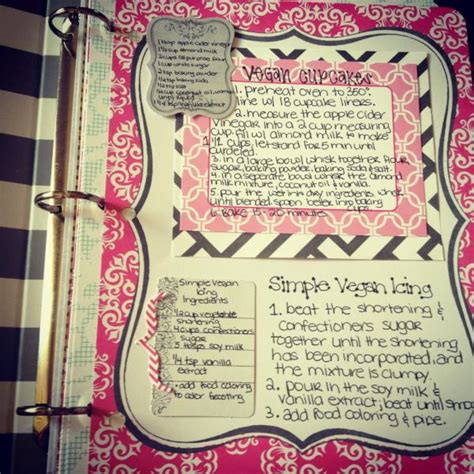 1 tbsp apple cider vinegar
1 1/2 cup almond milk
2 cups all purpose flour
1 cup white sugar
2 tsp baking powder
1/2 tsp baking soda
1/2 tsp salt
1/2 cup coconut oil, warmed
VEGAN CUPCAKES
1. preheat oven to 350°
line w/ 18 cupcake liners.
2. measure the apple cider
vinegar into a 2 cup measuring
cup. fill w/ almond milk to make
1 1/2 cups, let stand for 5 min until
curdled.
3. in a large bowl whisk together flour
sugar, baking powder, baking soda & salt.
4. in a seperate bowl whisk the almond
milk mixture, coconut oil & vanilla.
5. pour the wet into dry ingred. whisk
until blended. spoon batter into baking
cups
6. BAKE 15-20 minutes.
Simple Vegan
Icing
Ingredients
1/2 cup vegetable
shortening
4 cups confectioners
sugar
5 tbsps soy milk
1/4 tsp vanilla
extract
add food coloring
to color frosting
Simple Vegan Icing
1. beat the shortening &
confectioners sugar
together until the shortening
has been incorporated, and
the mixture is clumpy.
2. pour in the soy milk &
vanilla extract; beat until
3. add food coloring & pipe.